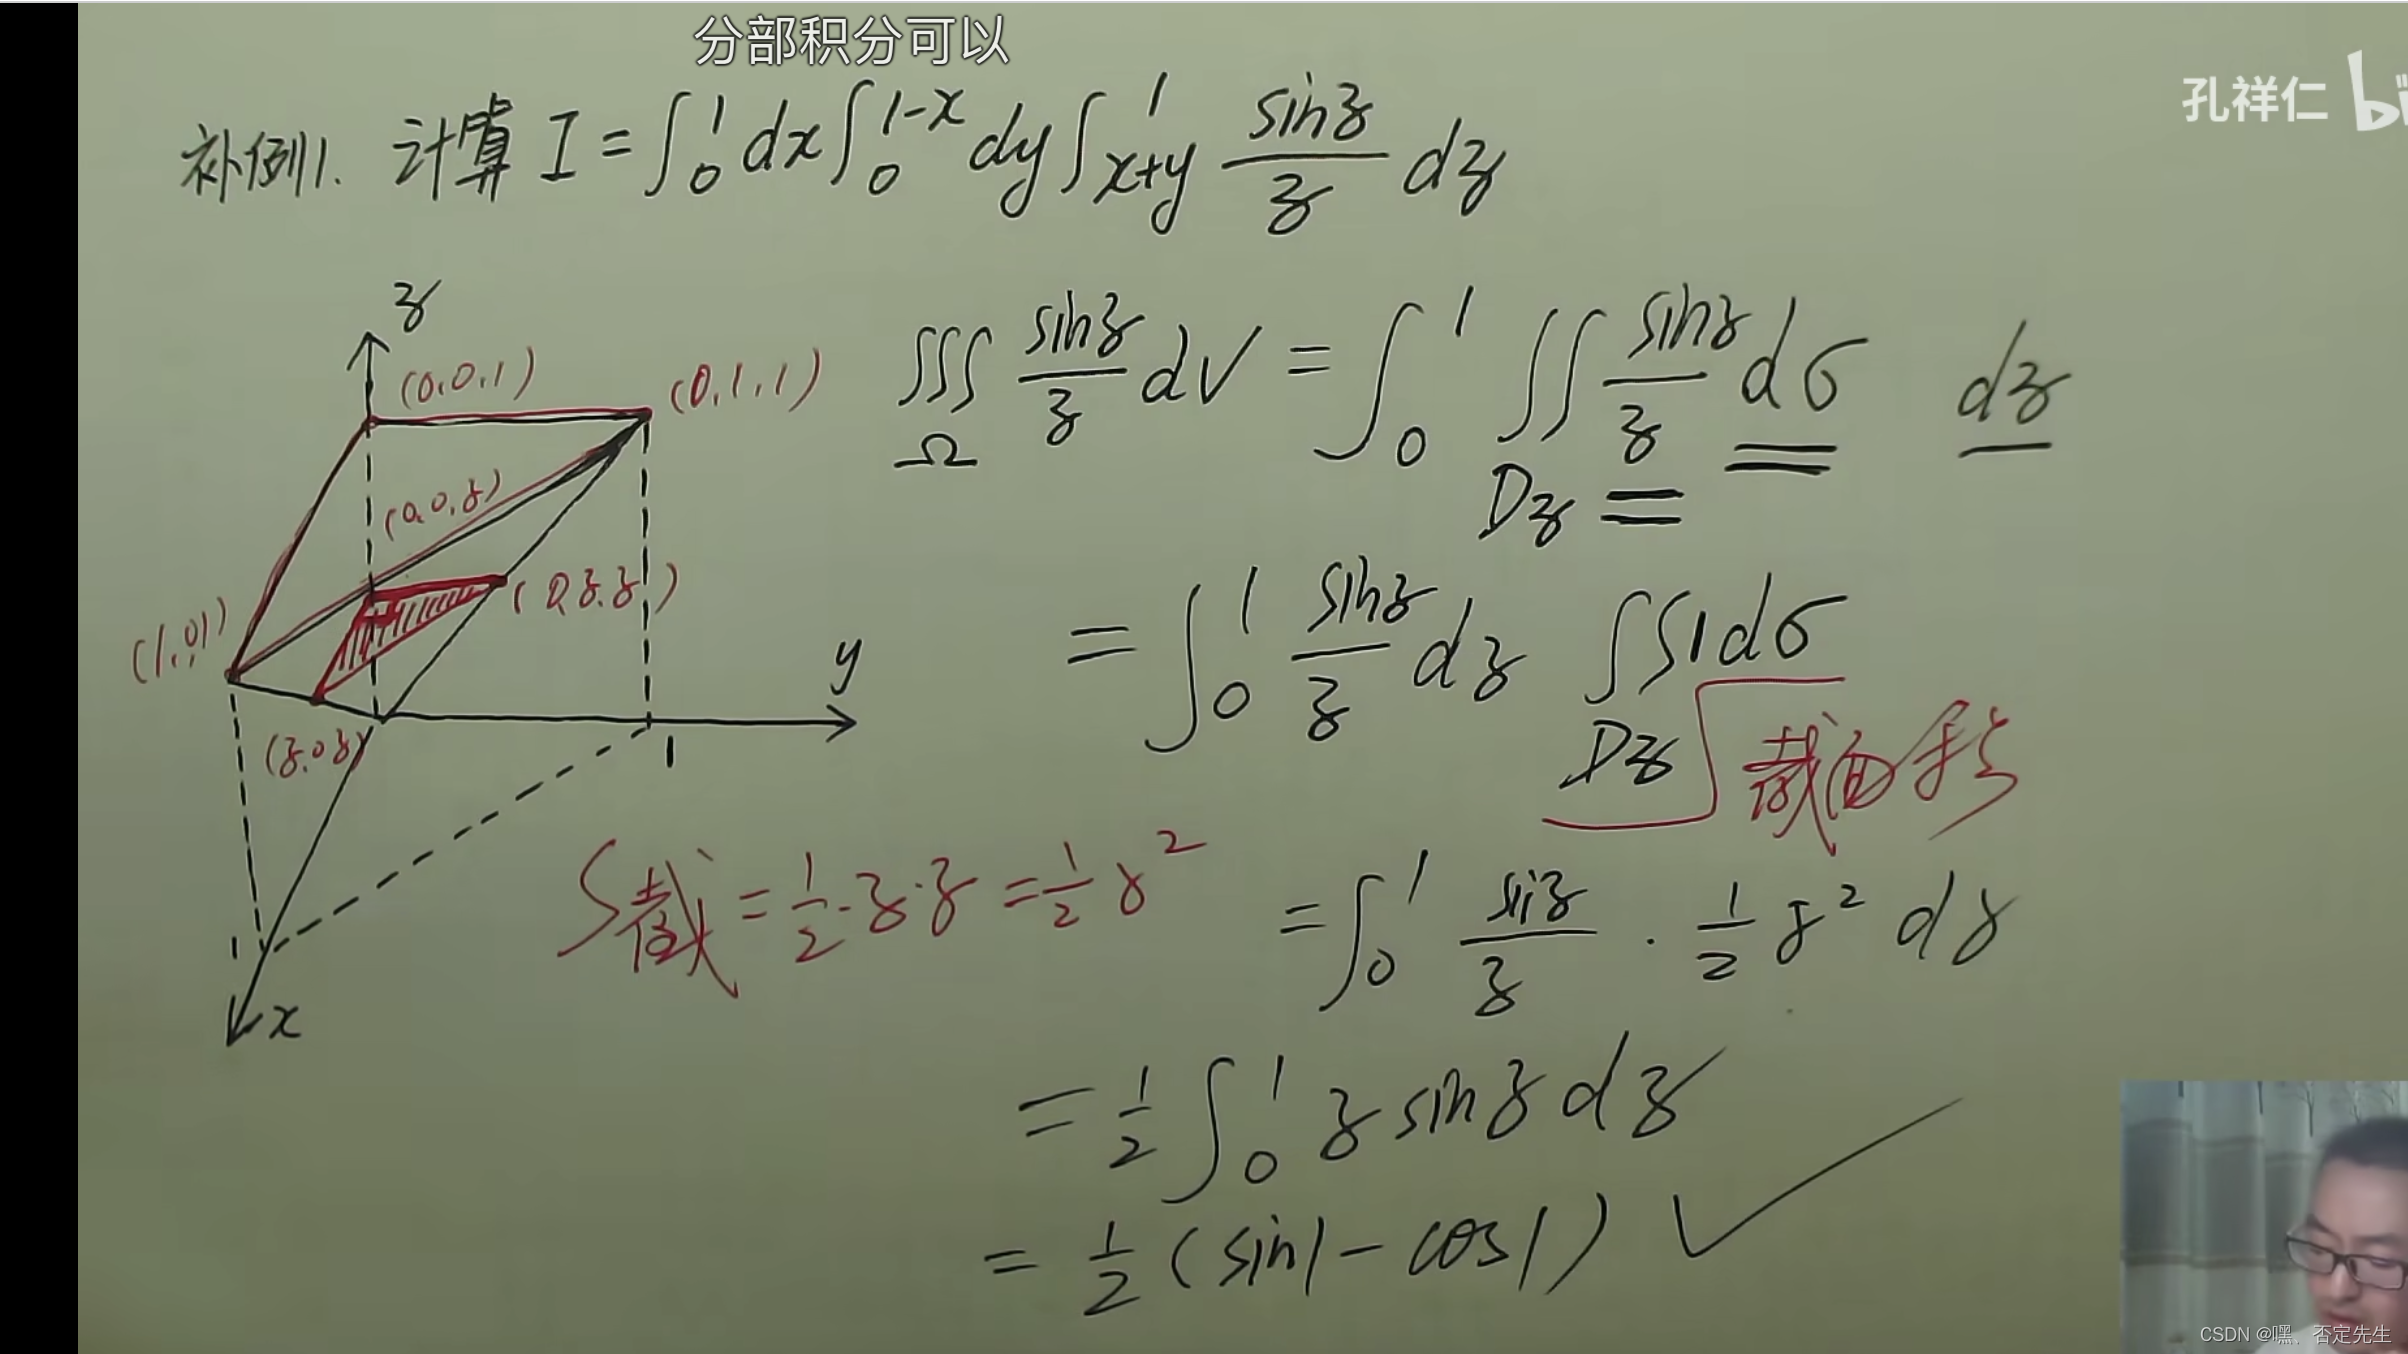 分部积分可以
孔祥仁 bi
补例1. 计算 I = ∫_0^1 dx ∫_0^{1-x} dy ∫_{x+y}^1 \frac{sinz}{z} dz
z
(0,0,1)
(0,1,1)
(0,0,z)
(0,z,z)
(1,0,1)
(z,0,z)
y
1
1
x
∭_Ω \frac{sinz}{z} dV = ∫_0^1 ∬_{Dz} \frac{sinz}{z} dσ dz
= ∫_0^1 \frac{sinz}{z} dz ∬_{Dz} 1dσ
截面积
S截 = \frac{1}{2}·z·z = \frac{1}{2}z^2
= ∫_0^1 \frac{sinz}{z} · \frac{1}{2} z^2 dz
= \frac{1}{2} ∫_0^1 z sinz dz
= \frac{1}{2} (sin1 - cos1) ✓
CSDN @嘿、否定先生